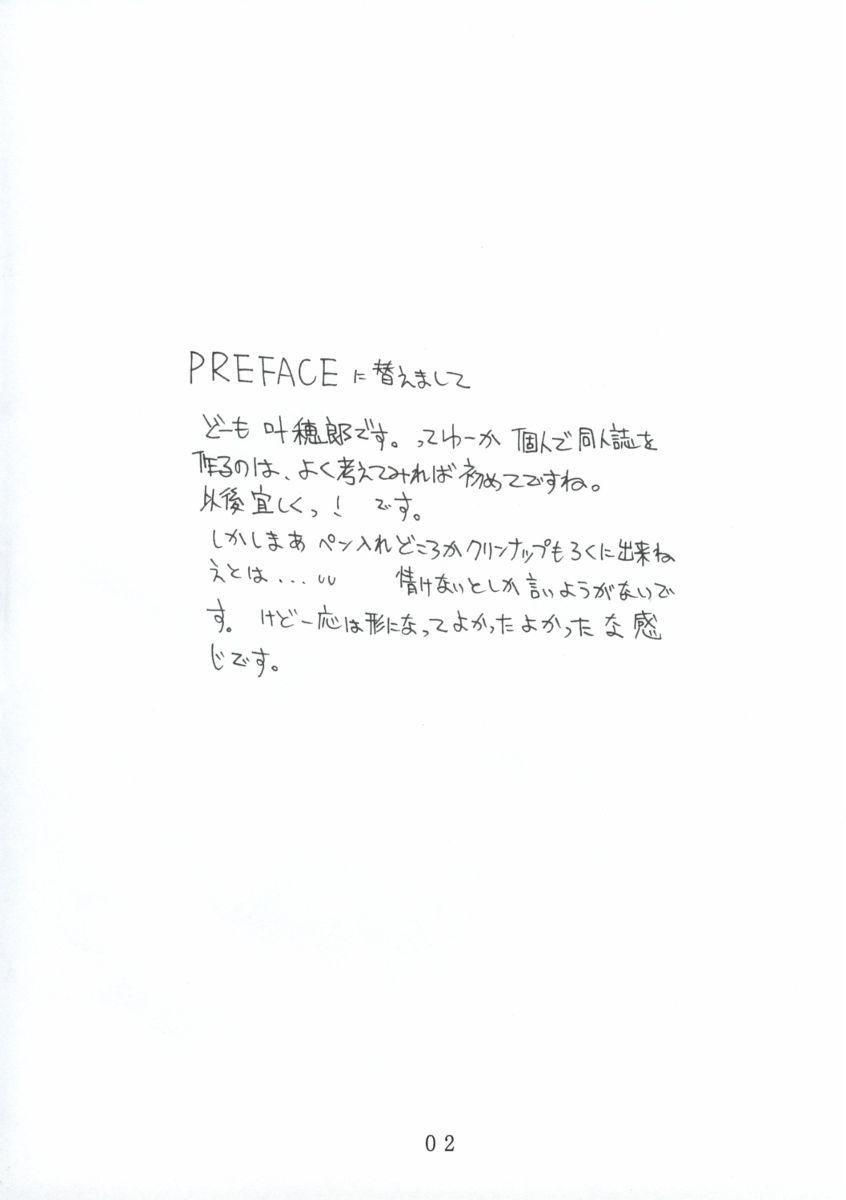 PREFACE に替えまして
どーも 叶穂郎です。ってゆーか 個人で同人誌を
作るのは、よく考えてみれば初めてですね。
以後宜しくっ! です。
しかしまあ ペン入れどころかクリンナップもろくに出来ね
えとは...
情けないとしか言いようがないで
す。 けど一応は形になってよかったよかったな感
じです。
02